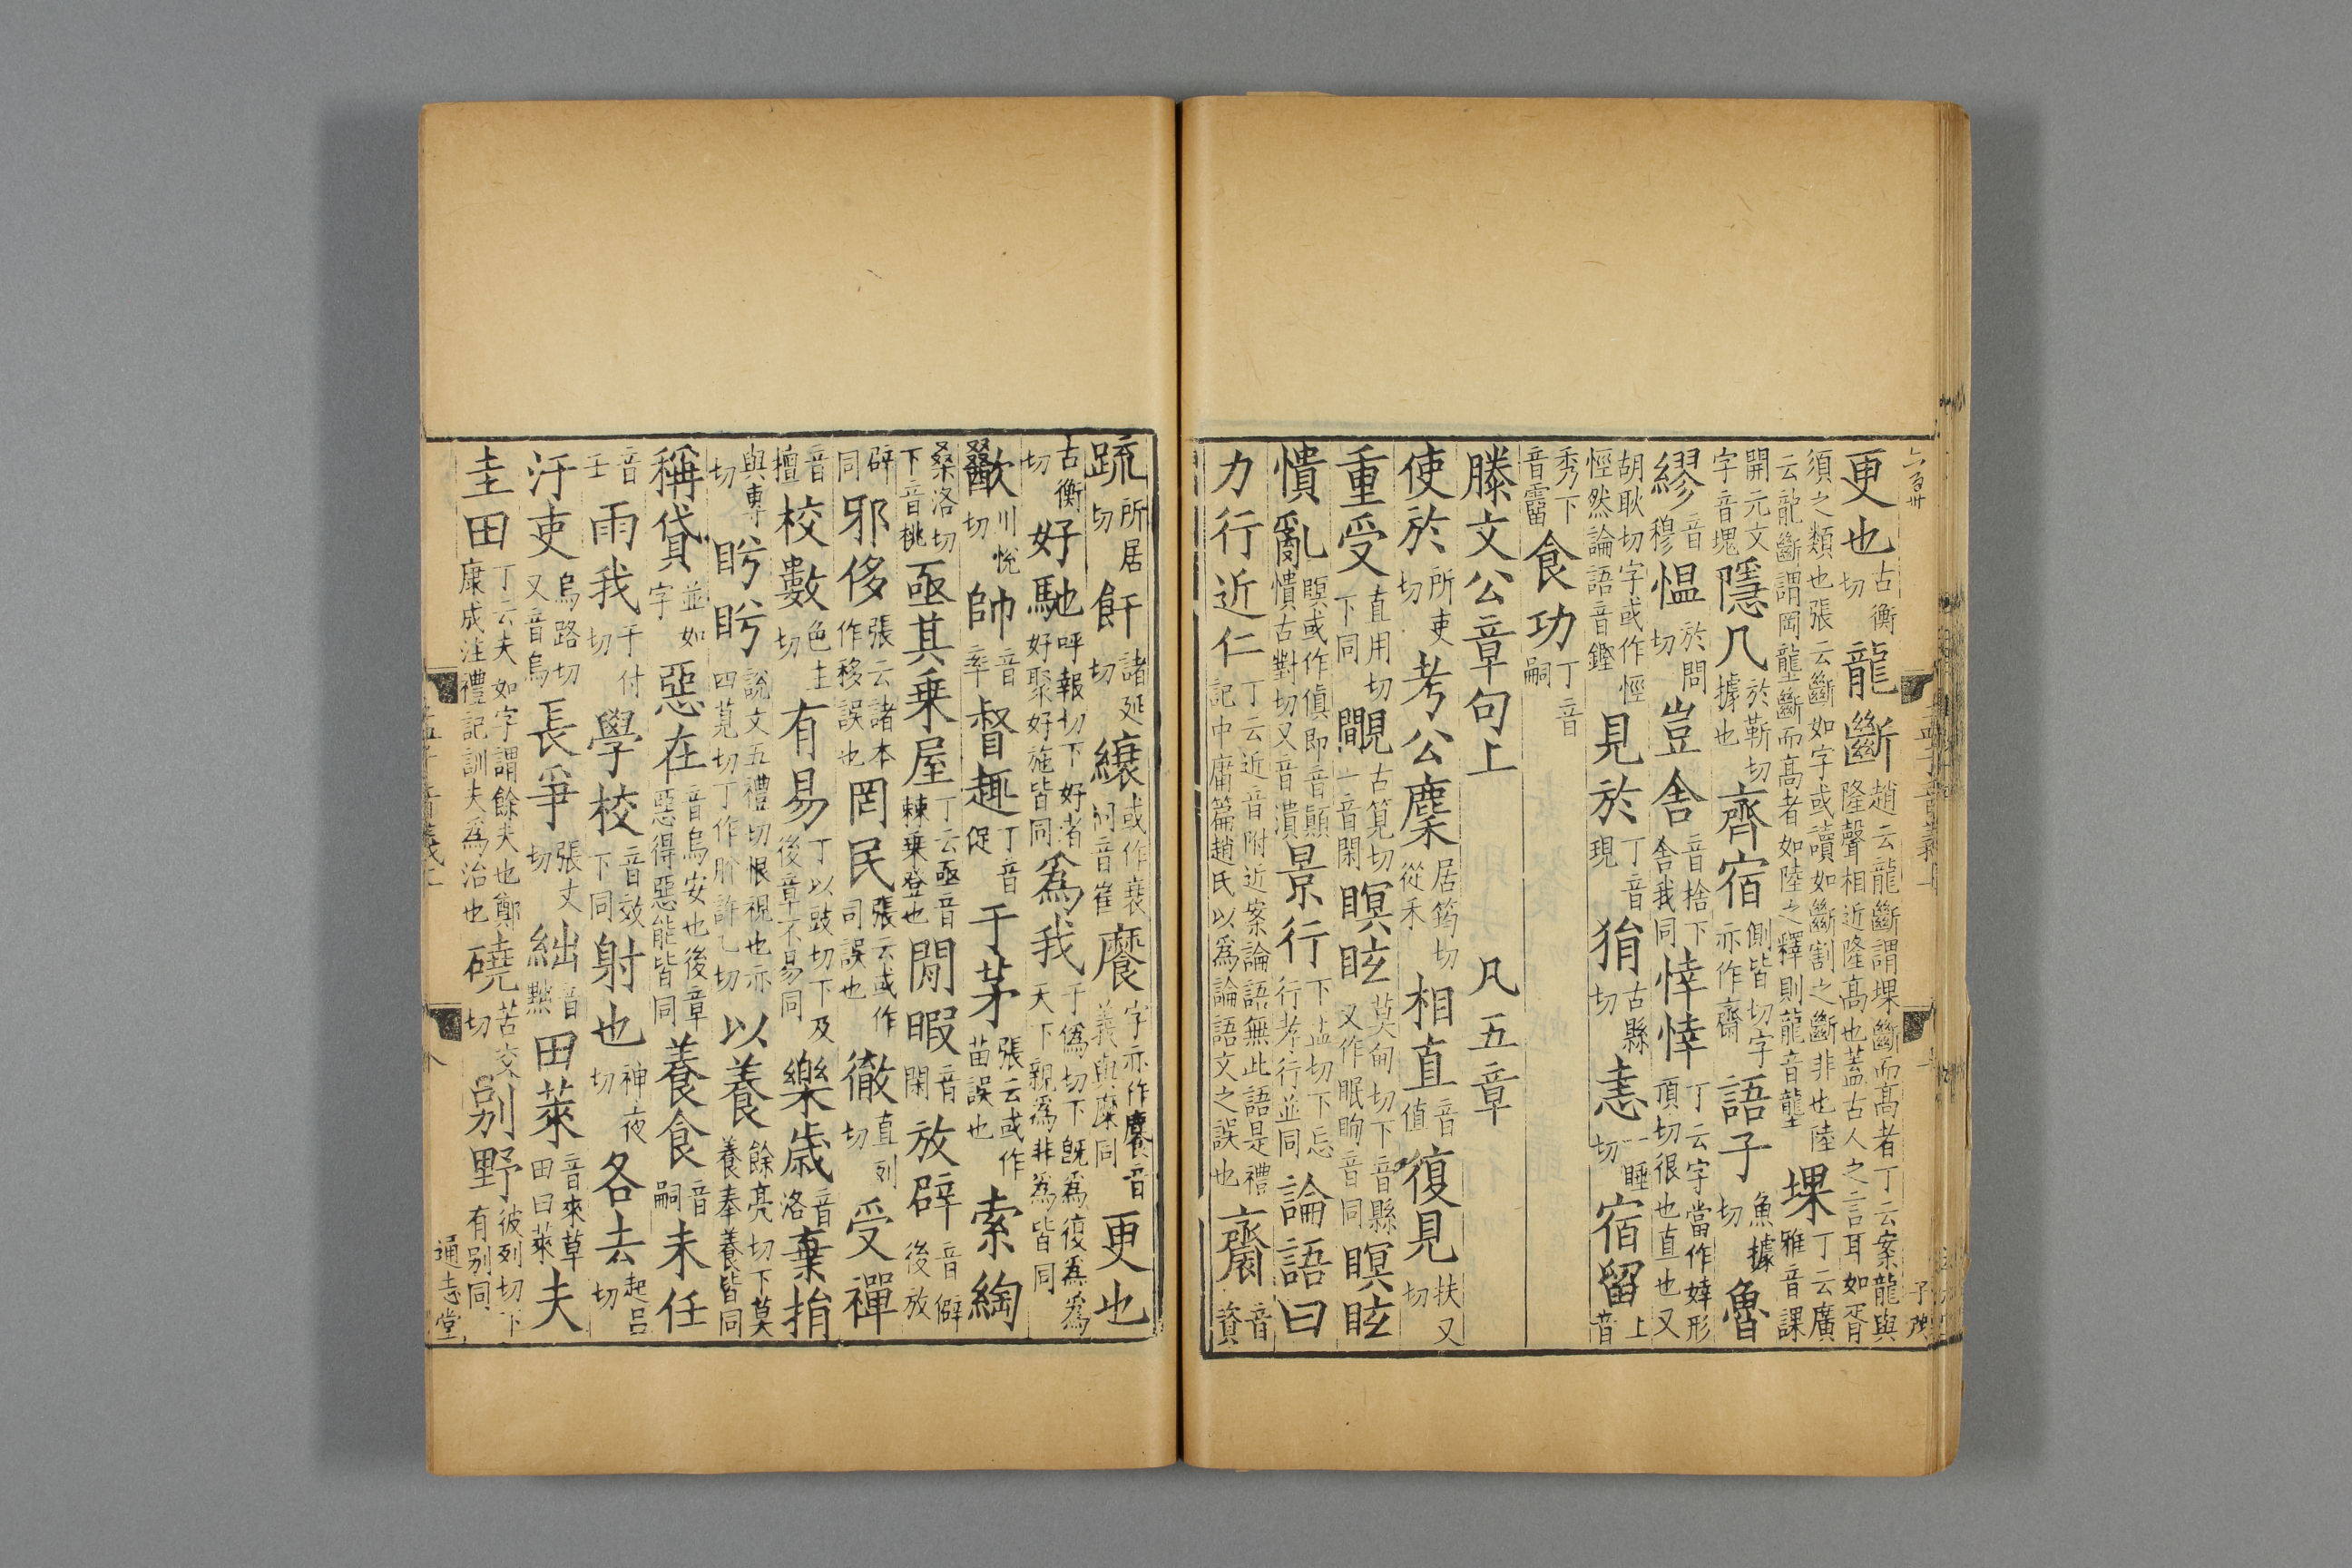 更也古衡切龍斷趙云龍斷謂堁斷而高者丁云案龍與隆聲相近隆高也蓋古人之言耳如胥
須之類也張云斷如字或讀如斷割之斷非也陸云龍斷謂岡壟斷而高者如陸之釋則龍音壟堁丁云廣雅音課
開元文字音塊隱几於靳切據也齊宿側皆切字亦作齋語子魚據切魯
繆音穆慍於問切豈舍音捨下舍我同悻悻丁云字當作婞形頂切很也直也又
胡耿切字或作悭悭然論語音鏗見於丁音現狷古縣切恚一睡切宿留上音
秀下音霤食功丁音嗣
滕文公章句上 凡五章
使於所吏切考公麇居筠切從禾相直音值復見扶又切
重受直用切下同覸古莧切一音閑瞑眩莫甸切下音縣又作眠眴音同瞑眩
憒亂瞑或作傎即音顛憒古對切又音潰景行下孟切下忘行孝行並同論語曰
力行近仁丁云近音附近案論語無此語是禮記中庸篇趙氏以爲論語文之誤也齋音資
疏所居切飦諸延切縗或作衰同音崔糜字亦作麋音義與糜同更也
古衡切好馳呼報切下好者好聚好施皆同爲我于僞切下旣爲復爲爲天下親爲非爲皆同
歠川悅切帥音率督趣丁音促于茅張云或作苗誤也索綯
桑洛切下音桃亟其乗屋丁云亟音棘乗登也閒暇音閑放辟音僻後放
辟同邪侈張云諸本作移誤也罔民張云或作司誤也徹直列切受禪
音擅校數色主切有易丁以豉切下及後章不易同樂歲音洛棄捐
與專切盻盻說文五禮切恨視也亦四莧切丁作肸許乙切以養餘亮切下莫養奉養皆同
稱貸並如字惡在音烏安也後章惡得惡能皆同養食音嗣未任
音壬雨我于付切學校音效下同射也神夜切各去起呂切
汙吏烏路切又音烏長爭張丈切絀音黜田萊音來草田曰萊夫
圭田丁云夫如字謂餘夫也鄭康成注禮記訓夫爲治也磽苦交切别野彼列切下有别同
通志堂